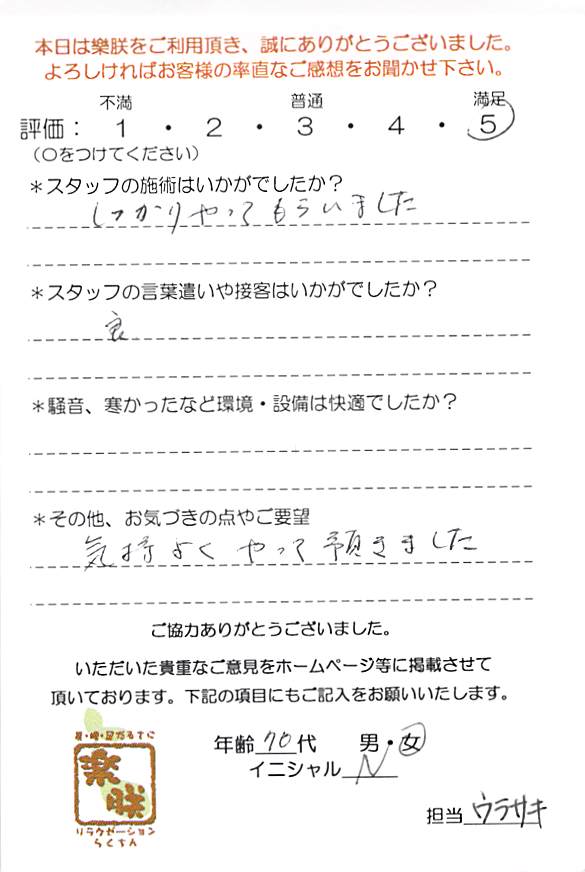 本日は樂朕をご利用頂き、誠にありがとうございました。
よろしければお客様の率直なご感想をお聞かせ下さい。
不満 普通 満足
評価： 1 ・ 2 ・ 3 ・ 4 ・ 5
（○をつけてください）
＊スタッフの施術はいかがでしたか？
しっかりやってもらいました
＊スタッフの言葉遣いや接客はいかがでしたか？
良
＊騒音、寒かったなど環境・設備は快適でしたか？
＊その他、お気づきの点やご要望
気持よくやって頂きました
ご協力ありがとうございました。
いただいた貴重なご意見をホームページ等に掲載させて
頂いております。下記の項目にもご記入をお願いいたします。
年齢 70 代 男・女
イニシャル N
樂朕
リラクゼーション
らくちん
担当 ウラサキ